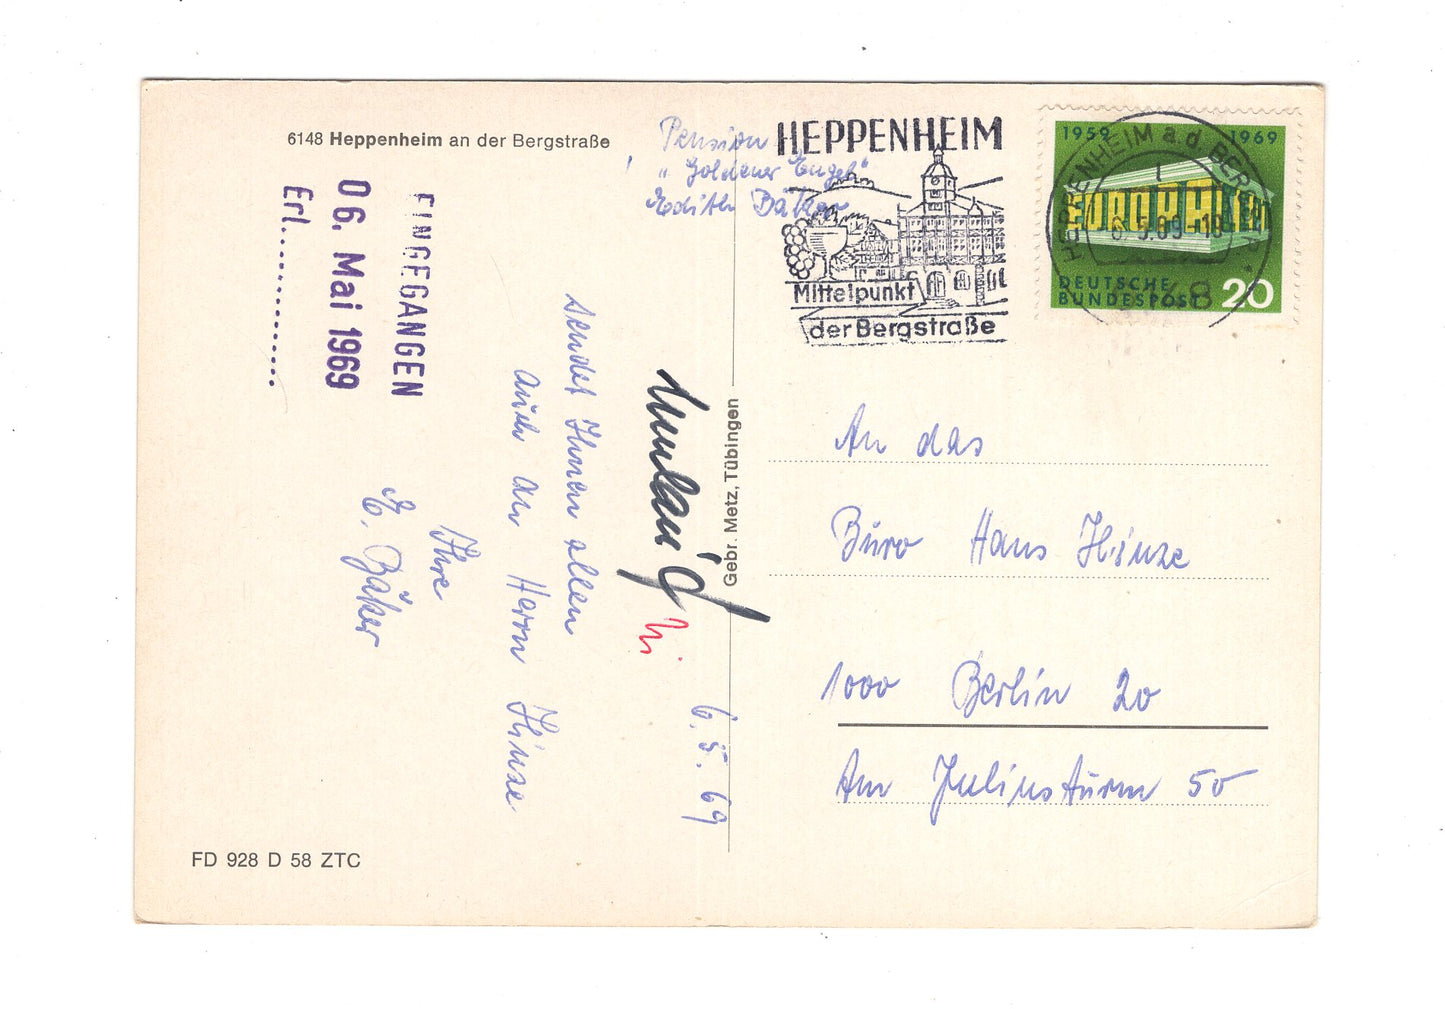 6148 Heppenheim an der Bergstraße
Pension
"Goldener Engel"
Edith Bäker
EINGEGANGEN
06. Mai 1969
Erl.............
6. 5. 69
Umlauf
sendet Ihnen allen
auch an Herrn Hinze
Ihre
E. Bäker
FD 928 D 58 ZTC
Gebr. Metz, Tübingen
HEPPENHEIM
Mittelpunkt
der Bergstraße
1959 1969
EUROPA CEPT
DEUTSCHE
BUNDESPOST 20
HEPPENHEIM a.d. BERGSTR
6148
An das
Büro Hans Hinze
1000 Berlin 20
Am Juliusturm 50